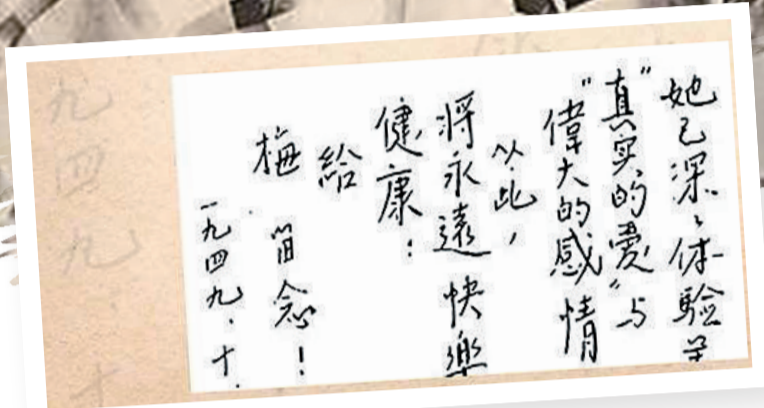 她已深〻体验
"真实的爱"与
偉大的感情
从此，
将永遠快樂
健康：
給
梅 留念！
一九四九．十．
九四九．十